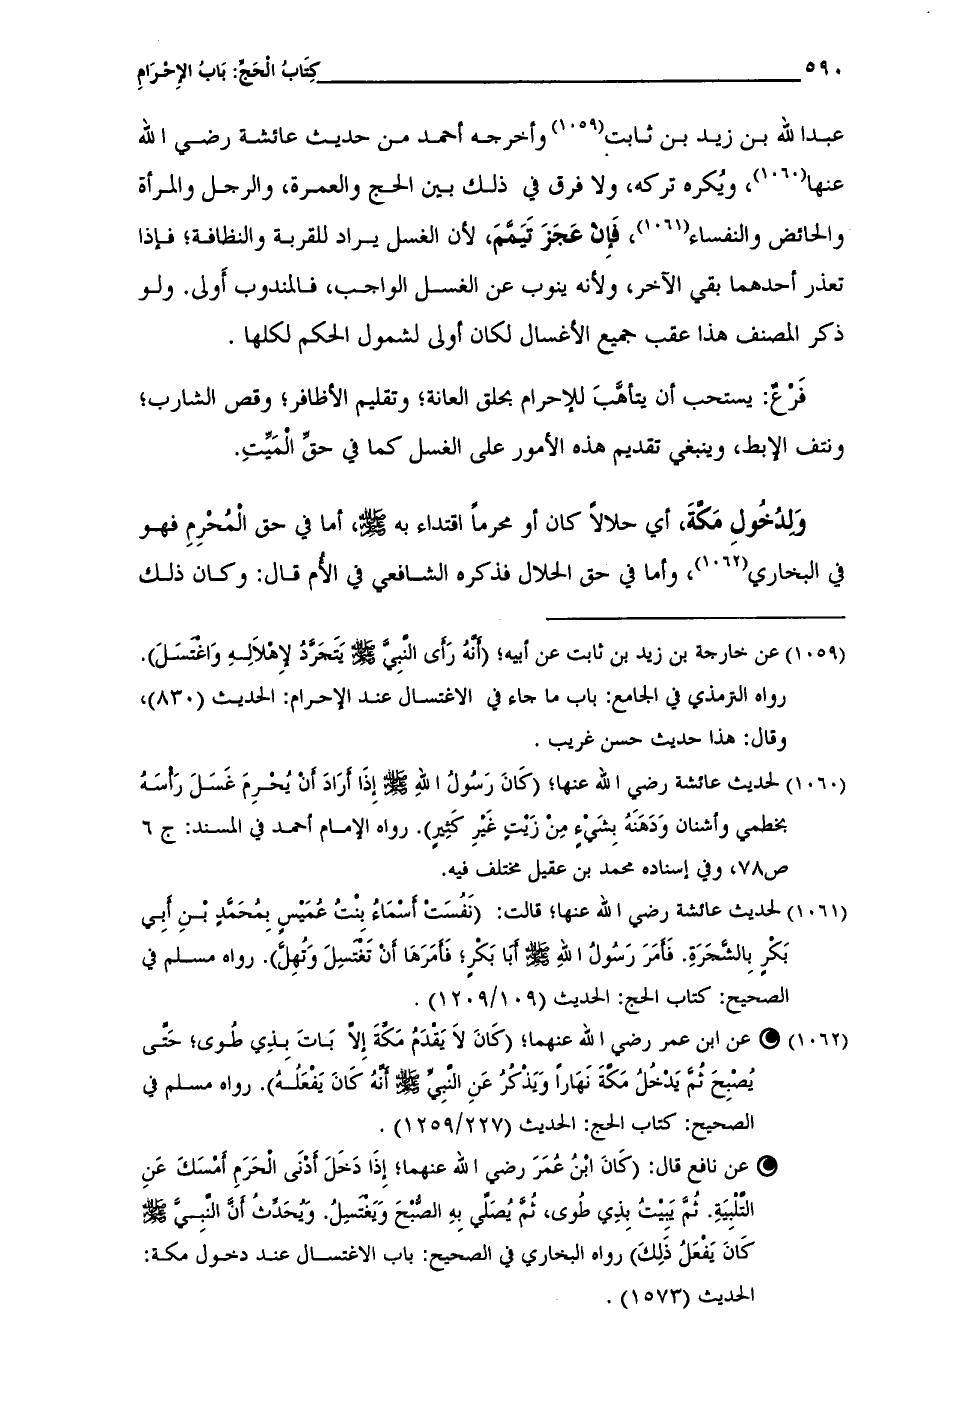 ٥٩٠ كِتَابُ الْحَجِّ: بَابُ الإِحْرَامِ
عبدا لله بن زيد بن ثابت(١٠٥٩) وأخرجه أحمد من حديث عائشة رضي الله
عنها(١٠٦٠)، ويُكره تركه، ولا فرق في ذلك بين الحج والعمرة، والرجل والمرأة
والحائض والنفساء(١٠٦١)، فَإِنْ عَجَزَ تَيَمَّمَ، لأن الغسل يراد للقربة والنظافة؛ فإذا
تعذر أحدهما بقي الآخر، ولأنه ينوب عن الغسل الواجب، فالمندوب أَولى. ولو
ذكر المصنف هذا عقب جميع الأغسال لكان أولى لشمول الحكم لكلها .
فَرْعٌ: يستحب أن يتأهَّبَ للإحرام بحلق العانة؛ وتقليم الأظافر؛ وقص الشارب؛
ونتف الإبط، وينبغي تقديم هذه الأمور على الغسل كما في حقِّ الْمَيِّتِ.
وَلِدُخُولِ مَكَّةَ، أي حلالاً كان أو محرماً اقتداء به ﷺ، أما في حق الْمُحْرِمِ فهو
في البخاري(١٠٦٢)، وأما في حق الحلال فذكره الشافعي في الأُم قال: وكان ذلك
(١٠٥٩) عن خارجة بن زيد بن ثابت عن أبيه؛ (أَنَّهُ رَأَى النَّبِيَّ ﷺ يَتَجَرَّدُ لِإِهْلَالِهِ وَاغْتَسَلَ).
رواه الترمذي في الجامع: باب ما جاء في الاغتسال عند الإحرام: الحديث (٨٣٠)،
وقال: هذا حديث حسن غريب .
(١٠٦٠) لحديث عائشة رضي الله عنها؛ (كَانَ رَسُولُ اللهِ ﷺ إِذَا أَرَادَ أَنْ يُحْرِمَ غَسَلَ رَأْسَهُ
بخطمي وأشنان وَدَهَنَهُ بِشَيْءٍ مِنْ زَيْتٍ غَيْرِ كَثِيرٍ). رواه الإمام أحمد في المسند: ج ٦
ص٧٨، وفي إسناده محمد بن عقيل مختلف فيه.
(١٠٦١) لحديث عائشة رضي الله عنها؛ قالت: (نَفُسَتْ أَسْمَاءُ بِنْتُ عُمَيْسٍ بِمُحَمَّدٍ بْنِ أَبِي
بَكْرٍ بِالشَّجَرَةِ. فَأَمَرَ رَسُولُ اللهِ ﷺ أَبَا بَكْرٍ؛ فَأَمَرَهَا أَنْ تَغْتَسِلَ وَتُهِلَّ). رواه مسلم في
الصحيح: كتاب الحج: الحديث (١٢٠٩/١٠٩) .
(١٠٦٢) عن ابن عمر رضي الله عنهما؛ (كَانَ لاَ يَقْدَمُ مَكَّةَ إِلاَّ بَاتَ بِذِي طُوى؛ حَتَّى
يُصْبِحَ ثُمَّ يَدْخُلُ مَكَّةَ نَهَاراً وَيَذْكُرُ عَنِ النَّبِيِّ ﷺ أَنَّهُ كَانَ يَفْعَلُهُ). رواه مسلم في
الصحيح: كتاب الحج: الحديث (١٢٥٩/٢٢٧) .
عن نافع قال: (كَانَ ابْنُ عُمَرَ رضي الله عنهما؛ إِذَا دَخَلَ أَدْنَى الْحَرَمِ أَمْسَكَ عَنِ
التَّلْبِيَةِ. ثُمَّ يَبِيْتُ بِذِي طُوى، ثُمَّ يُصَلِّي بِهِ الصُّبْحَ وَيَغْتَسِلُ. وَيُحَدِّثُ أَنَّ النَّبِيَّ ﷺ
كَانَ يَفْعَلُ ذَلِكَ) رواه البخاري في الصحيح: باب الاغتسال عند دخول مكة:
الحديث (١٥٧٣) .